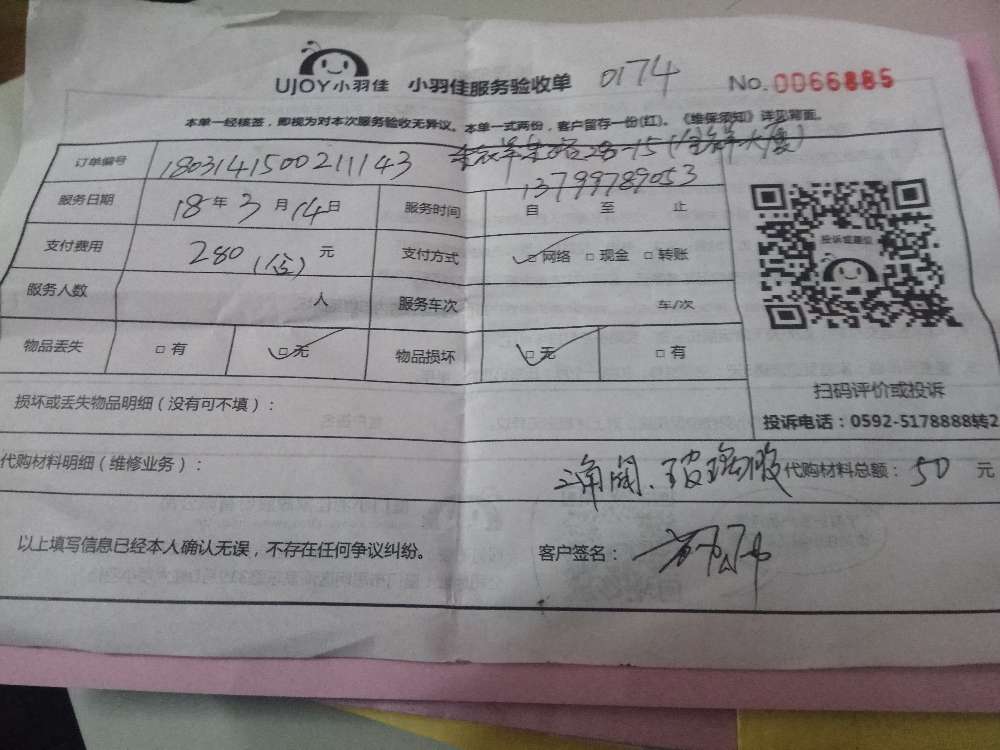 UJOY小羽佳 小羽佳服务验收单 0174 No. 0066885
本单一经核签，即视为对本次服务验收无异议。本单一式两份，客户留存一份(红)。《维保须知》详见背面。
订单编号 180314150021143
服务日期 18年3月14日 服务时间 13799789053 自 至 止
支付费用 280 元 支付方式 □网络 □现金 □转账
投诉或建议
服务人数 人 服务车次 车/次
物品丢失 □有 □无 物品损坏 □无 □有
扫码评价或投诉
损坏或丢失物品明细（没有可不填）：
投诉电话：0592-5178888转2
代购材料明细（维修业务）： 三角阀、玻璃胶 代购材料总额：50 元
以上填写信息已经本人确认无误，不存在任何争议纠纷。 客户签名：